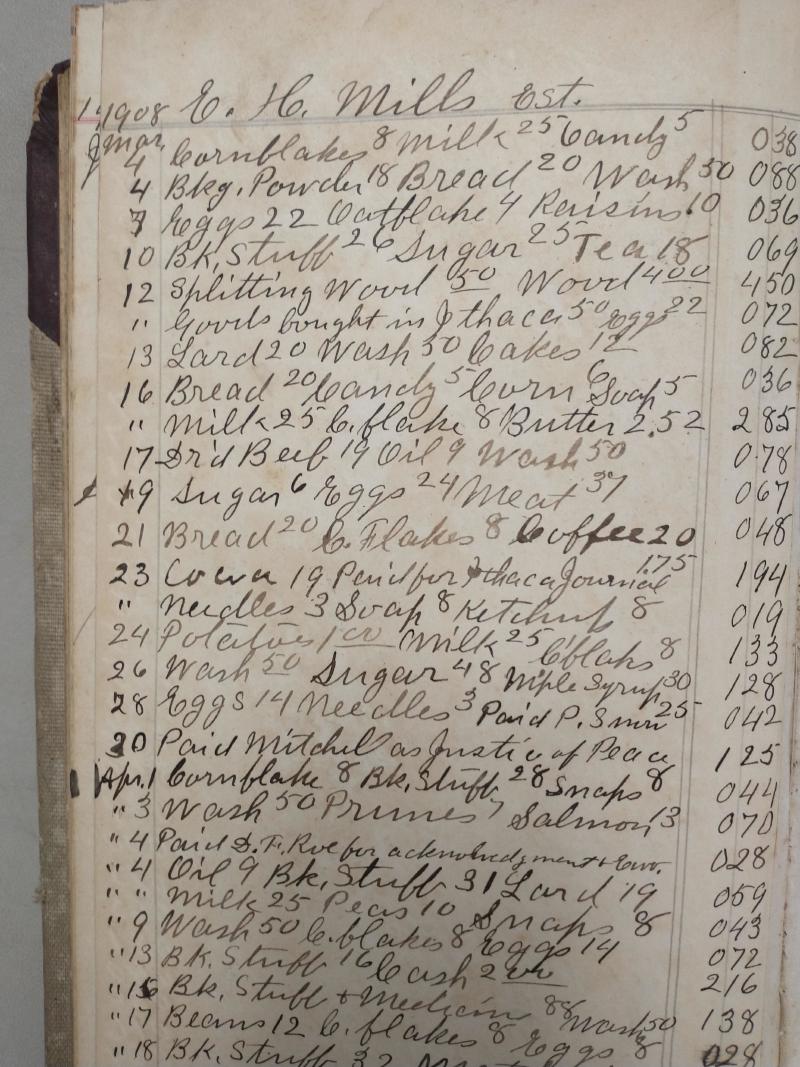 1908 E. H. Mills Est.
Mar.
4 Cornflakes 8 Milk 25 Candy 5 038
4 Bkg. Powder 18 Bread 20 Wash 50 088
7 Eggs 22 Oatflake 4 Raisins 10 036
10 Bk. Stuff 26 Sugar 25 Tea 18 069
12 Splitting Wood 50 Wood 400 450
" Goods bought in Ithaca 50 Eggs 22 072
13 Lard 20 Wash 50 Cakes 12 082
16 Bread 20 Candy 5 Corn 6 Soap 5 036
" Milk 25 C. flake 8 Butter 2.52 285
17 Dr'd Beef 19 Oil 9 Wash 50 078
19 Sugar 6 Eggs 24 Meat 37 067
21 Bread 20 C. Flakes 8 Coffee 20 048
23 Cocoa 19 Paid for Ithaca Journal 175 194
" Needles 3 Soap 8 Ketchup 8 019
24 Potatoes 1 00 Milk 25 Cflaks 8 133
26 Wash 50 Sugar 48 Maple Syrup 30 128
28 Eggs 14 Needles 3 Paid P. 25 042
30 Paid Mitchel as Justic of Peace 125
Apr. 1 Cornflake 8 Bk. Stuff 28 Snaps 8 044
" 3 Wash 50 Prunes 7 Salmon 13 070
" 4 Paid D. F. for acknowledgment + 028
" 4 Oil 9 Bk. Stuff 31 Lard 19 059
" " Milk 25 Peas 10 Snaps 8 043
" 9 Wash 50 C. flakes 8 Eggs 14 072
" 13 Bk. Stuff 16 Cash 2 00 216
" 15 Bk. Stuff + Medicin 88 Wash 50 138
" 17 Beans 12 C. flakes 8 Eggs 8 028
" 18 Bk. Stuff 32